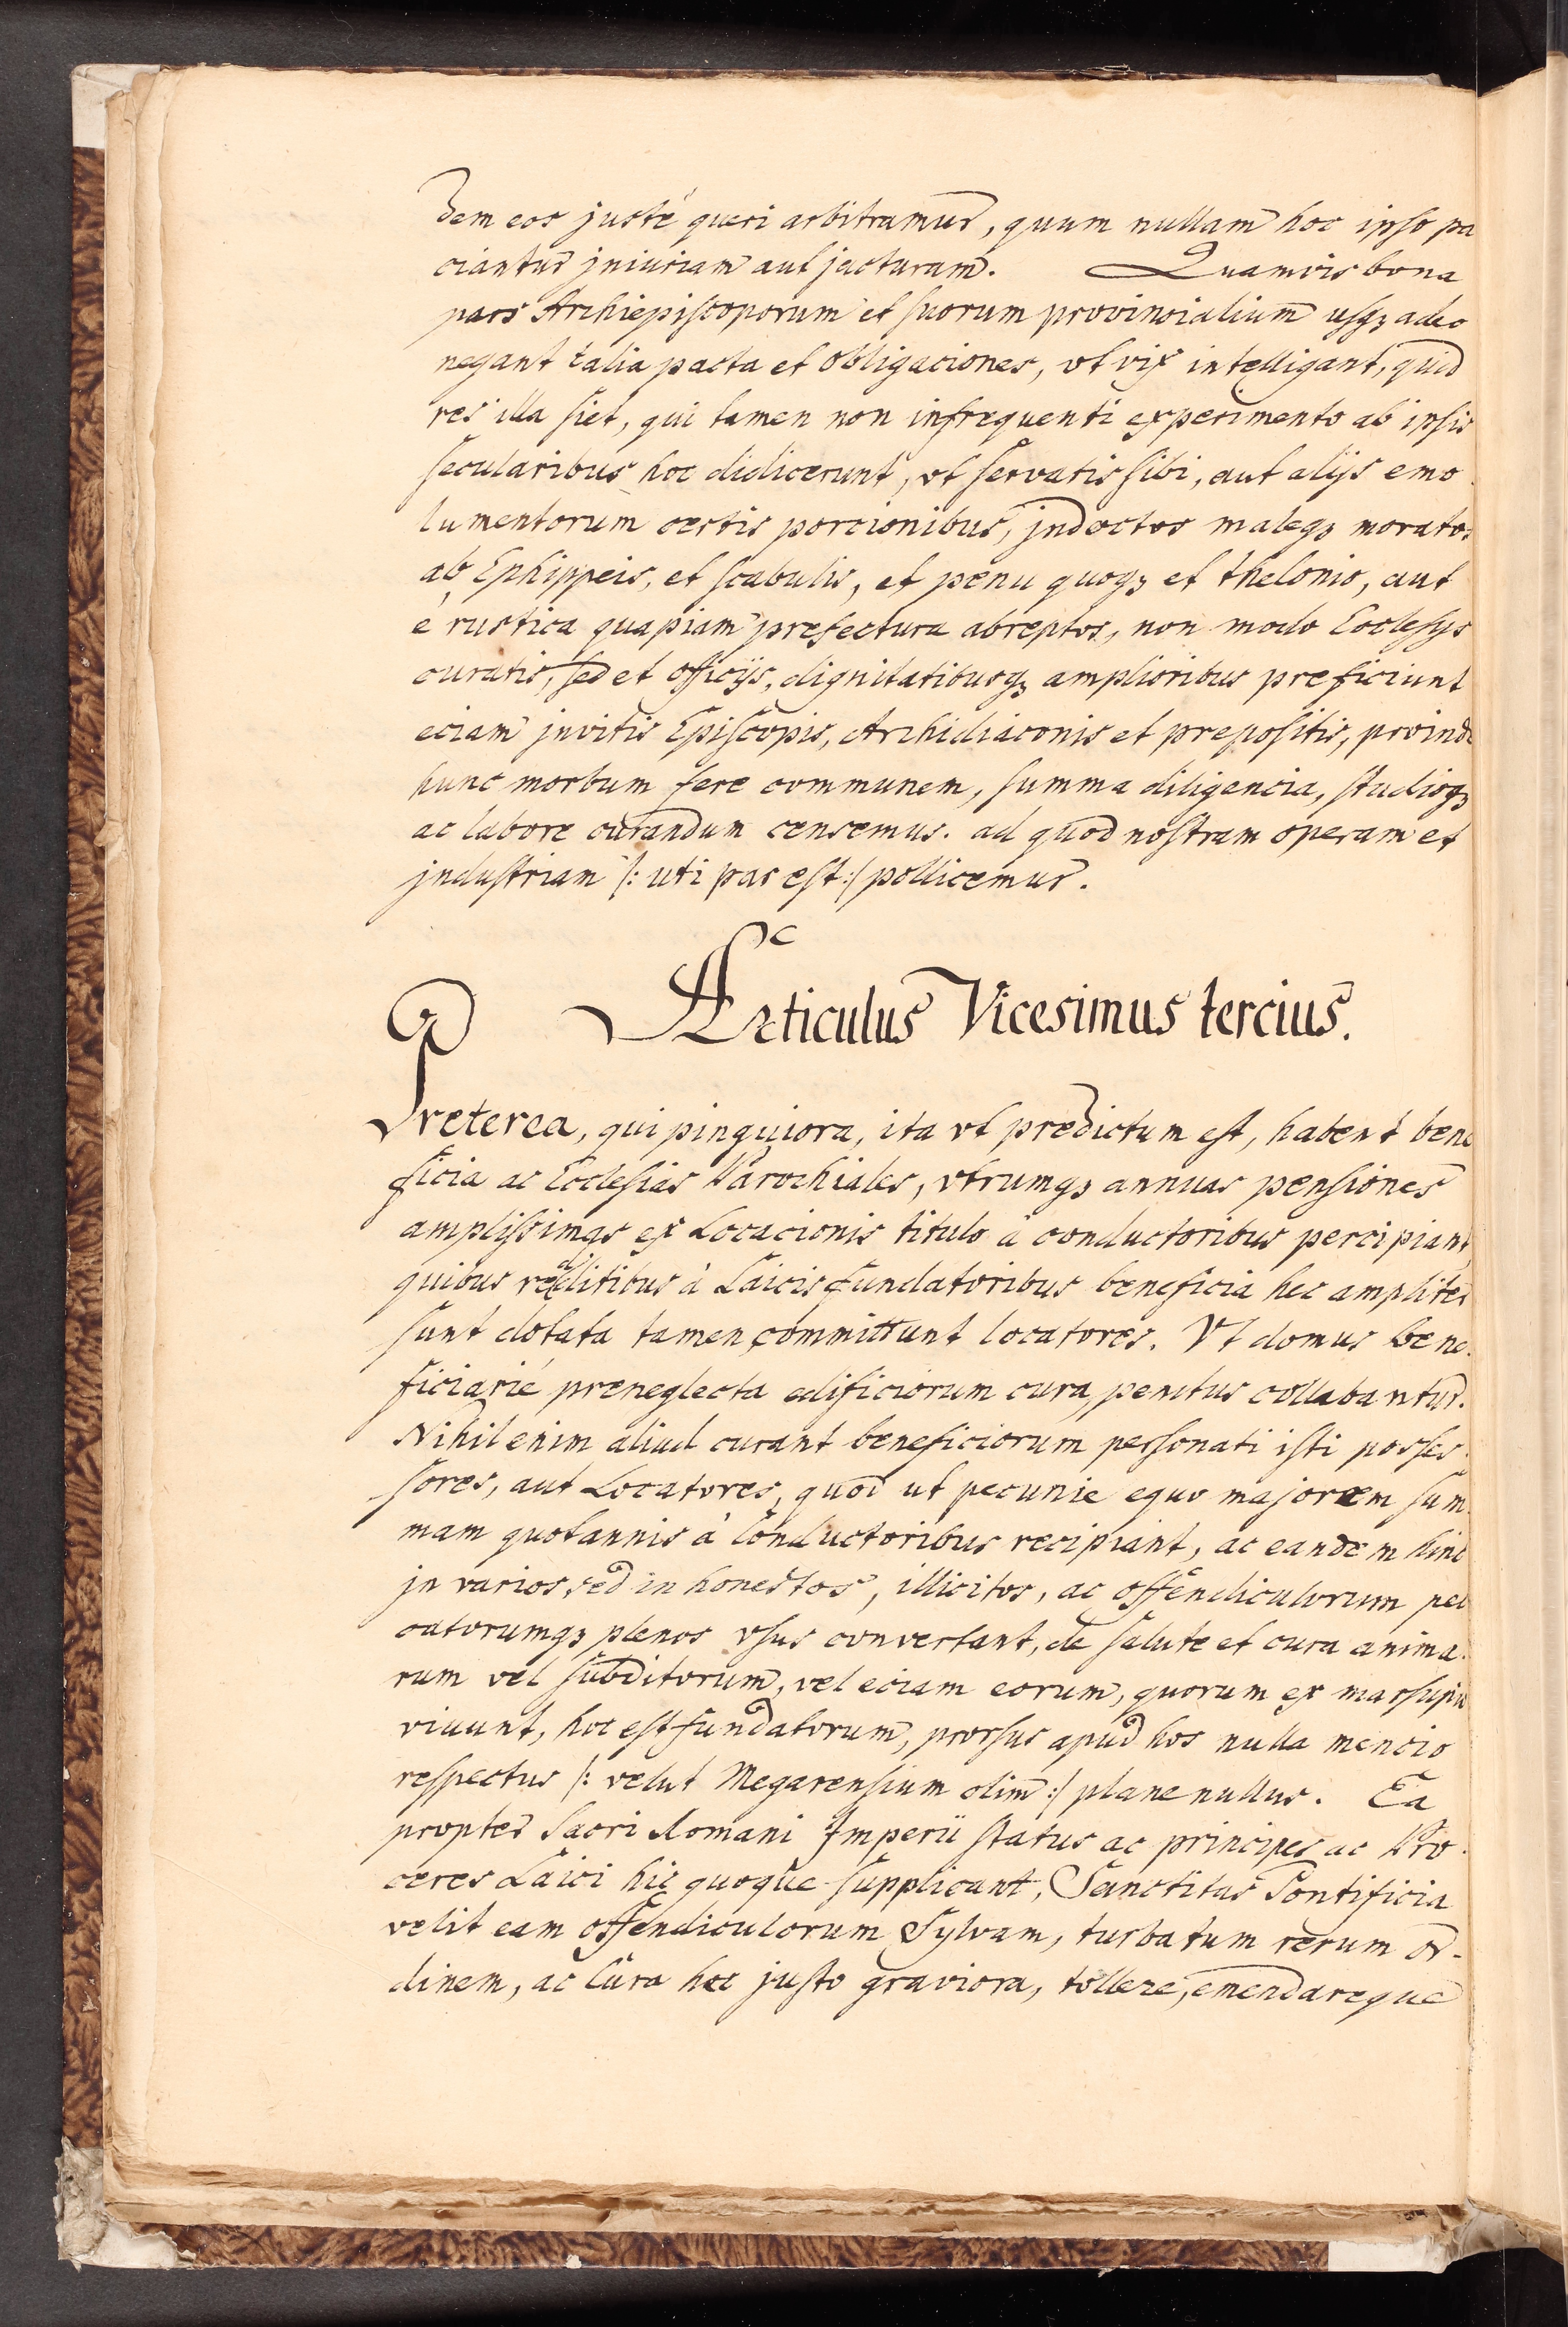 dem eos justè queri arbitramur, quum nullam hoc ipso pa
ciantur jniuriam aut jacturam. Quamvis bona
pars Archiepiscoporum et suorum provincialium usq₃ adeo
negant talia pacta et obligaciones, vt vix intelligant, quid
res illa siet, qui tamen non infrequenti experimento ab ipsis
secularibus hoc didicerunt, vt servatis sibi, aut alijs emo
lumentorum certis porcionibus, jndoctos maleq₃ moratos
ab Ephippeis, et scabulis, et penu quoq₃ et thelonio, aut
è rustica quapiam prefectura abreptos, non modo Ecclesijs
curatis, sed et officijs, dignitatibusq₃ amplioribus preficiunt
eciam jnvitis Episcopis, Archidiaconis et prepositis, proinde
hunc morbum fere communem, summa diligencia, studioq₃
ac labore curandum censemus. ad quod nostram operam et
jndustriam /: uti par est :/ pollicemur.
Articulus Vicesimus tercius.
Preterea, qui pinguiora, ita vt predictum est, habent bene
ficia ac Ecclesias Parochiales, vtrumq₃ annuas pensiones
amplissimas ex Locacionis titulo à conductoribus percipiant
quibus redditibus à Laicis fundatoribus beneficia hec ampliter
sunt dotata tamen committunt locatores. Vt domus bene
ficiarie preneglecta edificiorum cura, penitus collabantur.
Nihil enim aliud curant beneficiorum personati isti posses
sores, aut Locatores, quod ut pecunie equo majorem sum
mam quotannis à Conductoribus recipiant, ac eandem hinc
jn varios, sed in honestos, illicitos, ac offendiculorum pec
catorumq₃ plenos vsus convertant, de salute et cura anima
rum vel subditorum, vel eciam eorum, quorum ex marsupio
viuunt, hoc est fundatorum, prorsus apud hos nulla mencio
respectus /: velut Megarensium olim :/ plane nullus. Ea
propter Sacri Romani Imperii status ac principes ac Pro
ceres Laici hic quoque supplicant, Sanctitas Pontificia
velit eam offendiculorum Sylvam, turbatum rerum or-
dinem, ac Cura hec justo graviora, tollere, emendareque